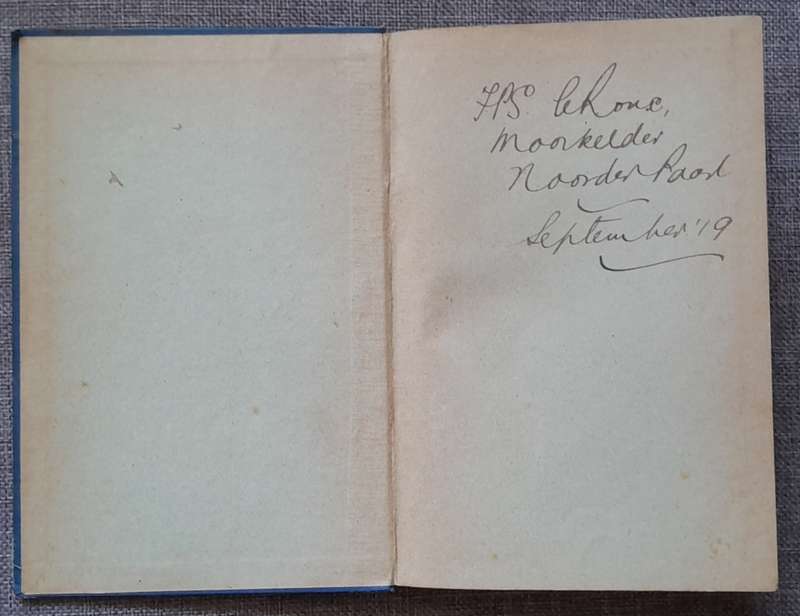 F.P.S. le Roux,
Mooikelder
Noorder Paarl
September '19